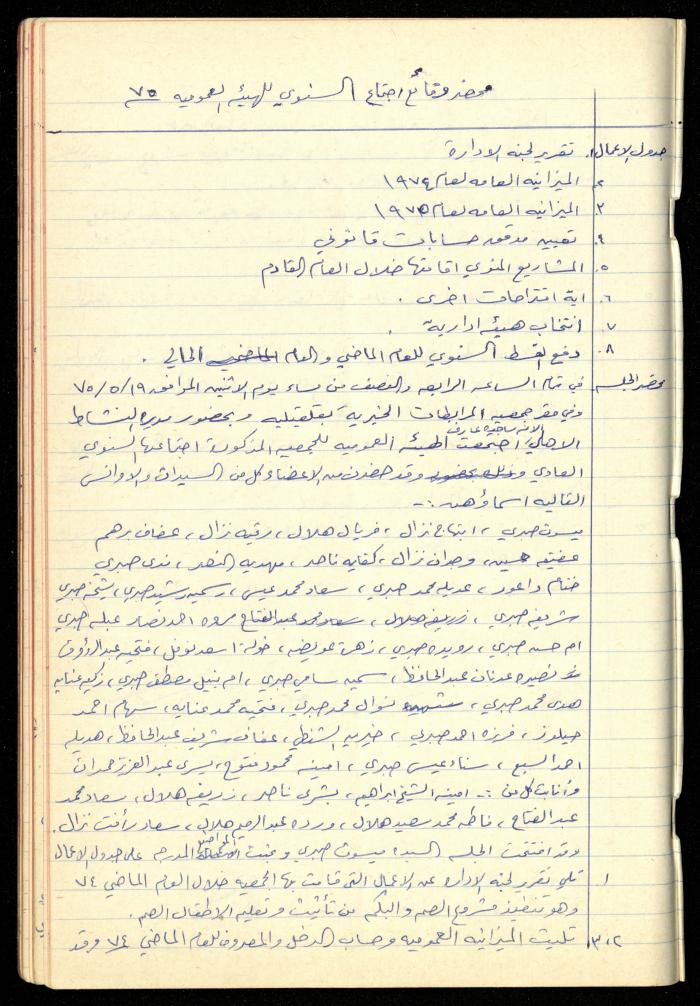 محضر وقائع اجتماع السنوي للهيئه العموميه ٧٥
جدول الاعمال ١. تقرير لجنه الادارة
٢. الميزانيه العامه لعام ١٩٧٤
٣. الميزانيه العامه لعام ١٩٧٥
٤. تعيين مدقق حسابات قانوني
٥. المشاريع المنوي اقامتها خلال العام القادم
٦. اية اقتراحات اخرى .
٧. انتخاب هيئه ادارية .
٨. دفع القسط السنوي للعام الماضي والعام الماضي الحالي .
محضر الجلسه في تمام الساعه الرابعه والنصف من مساء يوم الاثنين الموافق ٧٥/٥/١٩
وفي مقر جمعيه المرابطات الخيرية بقلقيليه وبحضور مديرة النشاط
الاهلي الانسه ساجدة عارف اجتمعت الهيئه العموميه للجمعيه المذكورة اجتماعها السنوي
العادي وقد حضر من الاعضاء كل من السيدات والاوانس
التاليه اسماؤهن :-
ميسون صبري ، ابتهاج نزال ، فريال هلال ، رقيه نزال ، عفاف برهم
عفيفه حسين ، وجدان نزال ، كفايه ناصر ، مهديه النصر ، ندى صبري
ختام داعور ، عديله محمد صبري ، سعاد محمد عيسى ، رسميه رشيد صبري ، شيخه صبري
شريفه صبري ، زريفه هلال ، سعاد محمد عبد الفتاح مروه احمد نصار عبله صبري
ام حسن صبري ، رويده صبري ، زهرة عويضه ، خولة اسعد نوفل ، فتحيه عبد الرؤوف
نصيره عدنان عبد الحافظ ، سميه سامي صبري ، ام نبيل مصطفى صبري ، زكيه عنايه
هدى محمد صبري ، نوال محمد صبري ، فتحيه محمد عنايه ، سهام احمد
جيلدز ، فرزه احمد صبري ، خيريه الشنطي ، عفاف شريف عبد الحافظ ، هديله
احمد السبع ، سناء عيسى صبري ، امينه محمود فتوح ، يسرى عبد العزيز حمدان
وأنابت كل من :- امينه الشيخ ابراهيم ، بشرى ناصر ، زريفه هلال ، سعاد محمد
عبد الفتاح ، فاطمه محمد سعيد هلال ، ورده عبد الرحيم هلال ، سعاد رأفت نزال .
وقد افتتحت الجلسه السيده ميسون صبري وبحثت المواضيع المدرجه على جدول الاعمال
١. تلي تقرير لجنه الاداره عن الاعمال التي قامت بها الجمعيه خلال العام الماضي ٧٤
وهو تنفيذ مشروع الصم والبكم من تأثيث وتعليم الاطفال الصم .
٢، ٣. تليت الميزانيه العموميه وحساب الدخل والمصروف للعام الماضي ٧٤ وقد